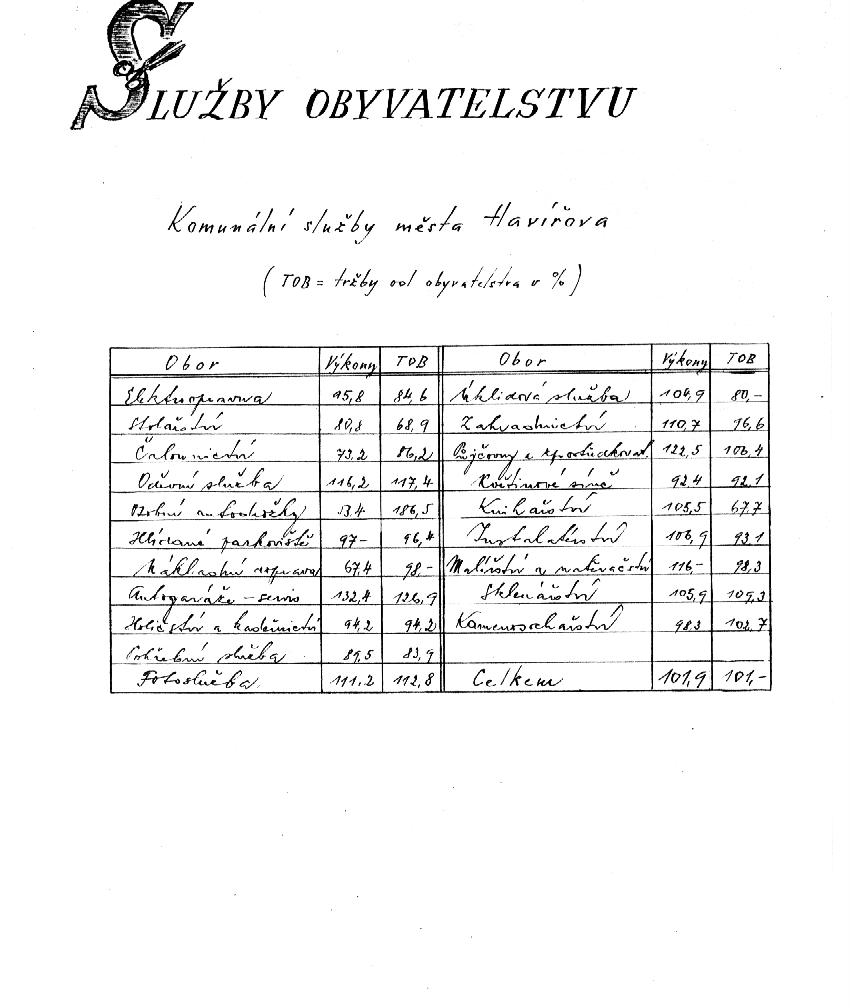 SLUŽBY OBYVATELSTVU
Komunální služby města Havířova
( TOB = tržby od obyvatelstva v % )
Obor Výkony TOB Obor Výkony TOB
Elektroopravna 95,8 84,6 Úklidová služba 104,9 80,-
Stolařství 80,8 68,9 Zahradnictví 110,7 76,6
Čalounictví 73,2 86,2 Půjčovny a zprostředkovat. 122,5 106,4
Oděvní služba 116,2 117,4 Květinové síně 92,4 92,1
Osobní autodrožky 53,4 186,5 Knihařství 105,5 67,7
Hlídané parkoviště 97- 96,4 Instalatérství 106,9 93,1
Nákladní doprava 67,4 98,- Malířství a natěračství 116,- 98,3
Autogaráže - servis 132,4 126,9 Sklenářství 105,9 109,3
Holičství a kadeřnictví 94,2 94,2 Kamenosochařství 98,3 102,7
Pohřební služba 89,5 83,9
Fotoslužba 111,2 112,8 Celkem 101,9 101,-